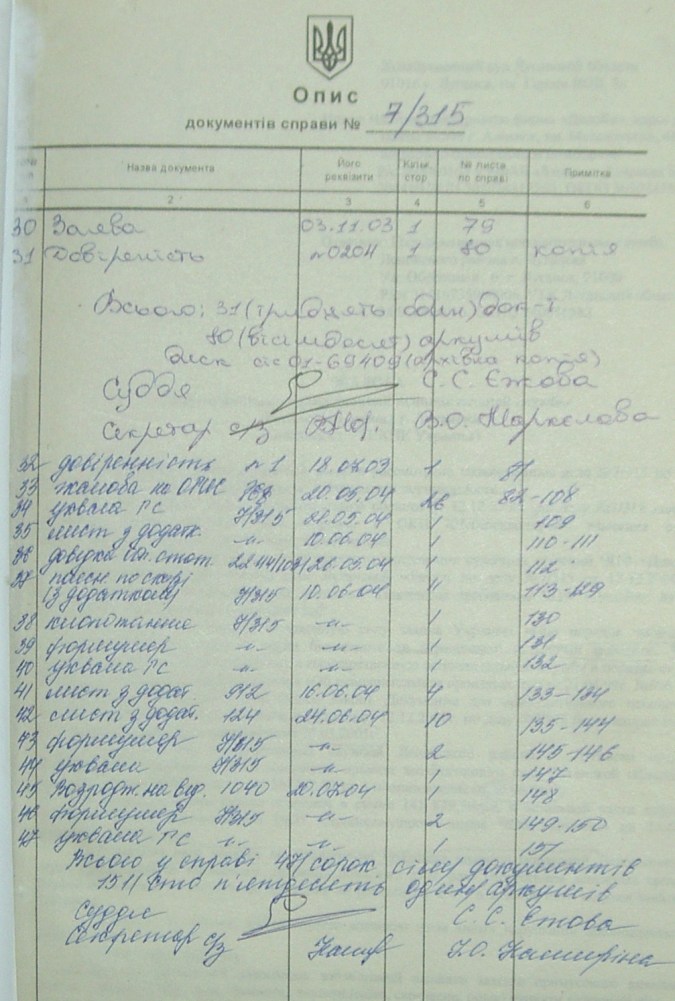 Опис
документів справи № 7/315
Назва документа Його реквізити Кільк. стор № листа по справі Примітка
2 3 4 5 6
30 Заява 03.11.03 1 79
31 Довіреність №0204 1 80 копія
Всього: 31 (тридцять один) док-т
80 (вісімдесят) аркушів
диск 01-69409 (архівна копія)
Суддя С. С. Єжова
Секретар с/з В.О. Маркелова
32 довіренність №1 18.02.03 1 81
33 жалоба на 20.05.04 26 82-108
34 ухвала ГС 7/315 21.05.04 1 109
35 лист з додатк. -"- 10.06.04 1 110-111
36 довідка 26.05.04 1 112
37 поясн. по скарзі
(з додатками) 7/315 10.06.04 " 113-129
38 клопотання 7/315 -"- 1 130
39 формуляр -"- -"- 1 131
40 ухвала ГС -"- -"- 1 132
41 лист з додат. 912 16.06.04 4 133-134
42 лист з додат. 124 24.06.04 10 135-144
43 формуляр 7/315 -"- 2 145-146
44 ухвала 7/315 -"- 1 147
45 1040 20.07.04 1 148
46 формуляр 7/315 -"- 2 149-150
47 ухвала ГС -"- -"- 1 151
Всього у справі 47 /сорок сім/ документів
151 /сто п'ятдесять один/ аркушів
Суддя С. С. Єжова
Секретар с/з